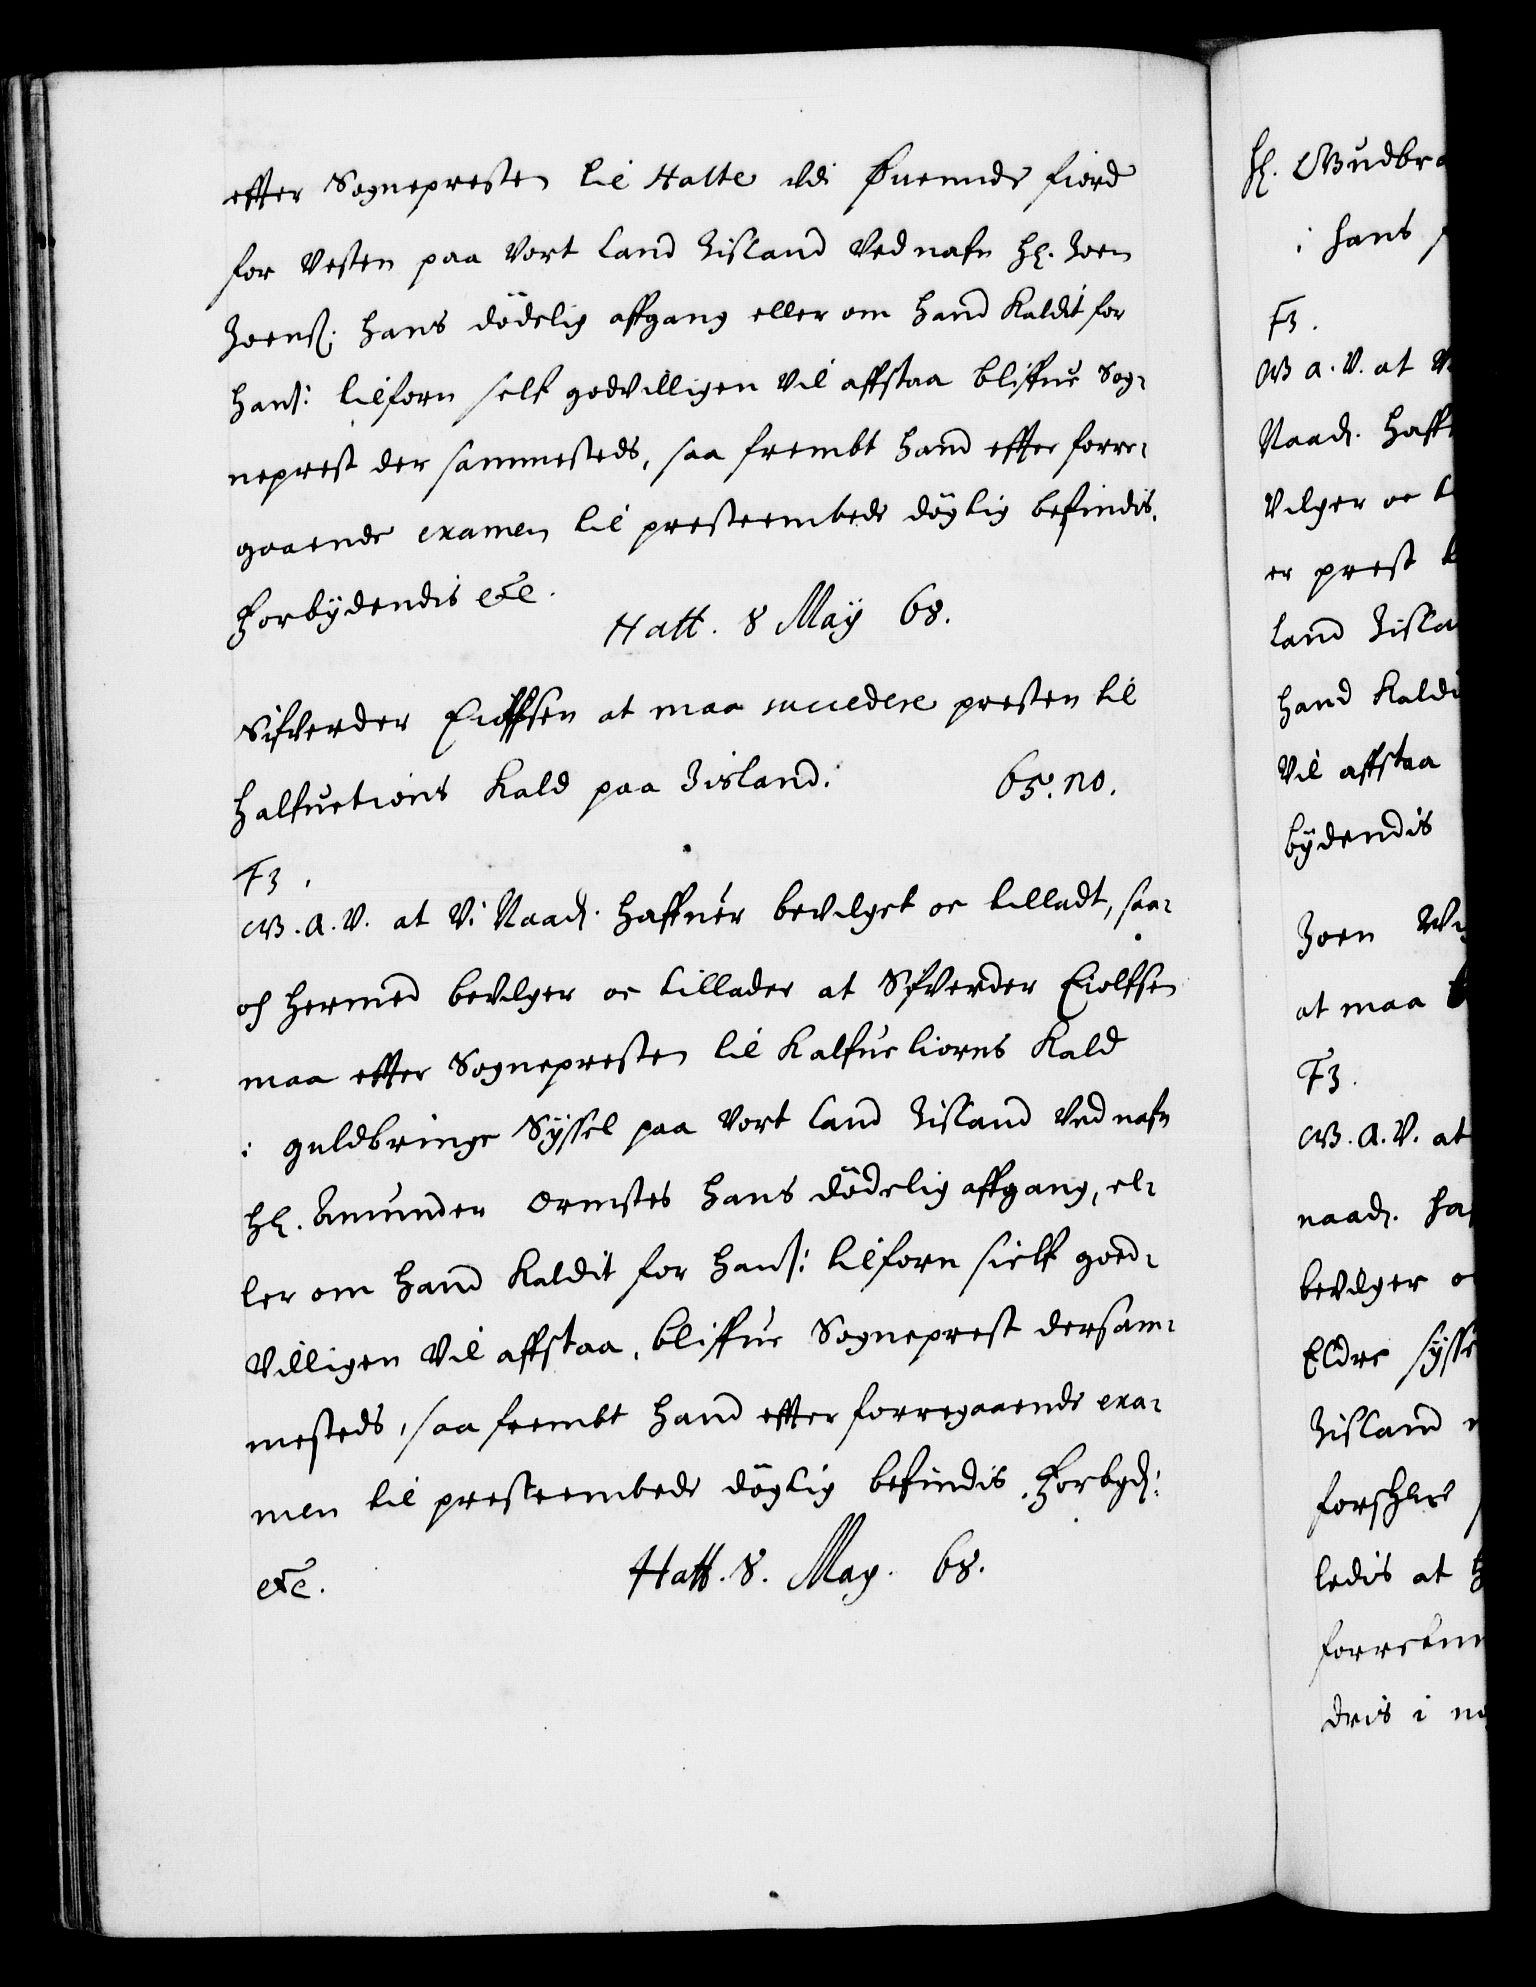 effter Sognepresten til Hatte udi Øuennde fiord
for Vesten paa Vort Land Iisland Ved nafn Hl. Joen
Joens: Hans dødelig affgang eller om hand Kaldit for
Hans: tilforn self godvilligen Vil affstaa bliffue Sog-
neprest der sammesteds, saa frembt hand effter forre-
gaaende examen til presteembede døgtig befindis.
Forbydendis etc.
Haff. 8 Maÿ 68.
Sifverder Eiolffsen at maa succedere presten til
Halfuetions Kald paa Jisland.
65. no.
F3.
G. A. V. at Vi Naadl. Haffuer bevilget oc tilladt, saa-
och hermed bevilger oc tillader at Sifverder Eiolfsen
maa effter Sognepresten til Kalfuetiorns Kald
i guldbringe Sÿssel paa Vort Land Iisland Ved nafn
Hl. Amunder Ormstes hans dødelig affgang, el-
ler om hand Kaldit for Hans: tilforn sielf goed-
Villigen Vil affstaa, bliffue Sogneprest dersam-
mesteds, saa frembt hand effter forregaaende exa-
men til presteembede døgtig befindis. Forbyd:
etc.
Haff. 8. May. 68.
Hl. Gudbra
i hans
F3.
G A. V. at V
Naadl. Haff
Vilger oc t
er prest
Land Iisla
hand Kaldi
Vil affstaa
bÿdendis
Joen
at maa
F3.
G. A. V. at
naadl. ha
bevilger o
Eldre sÿsse
Iisland
ledis at
dris i no